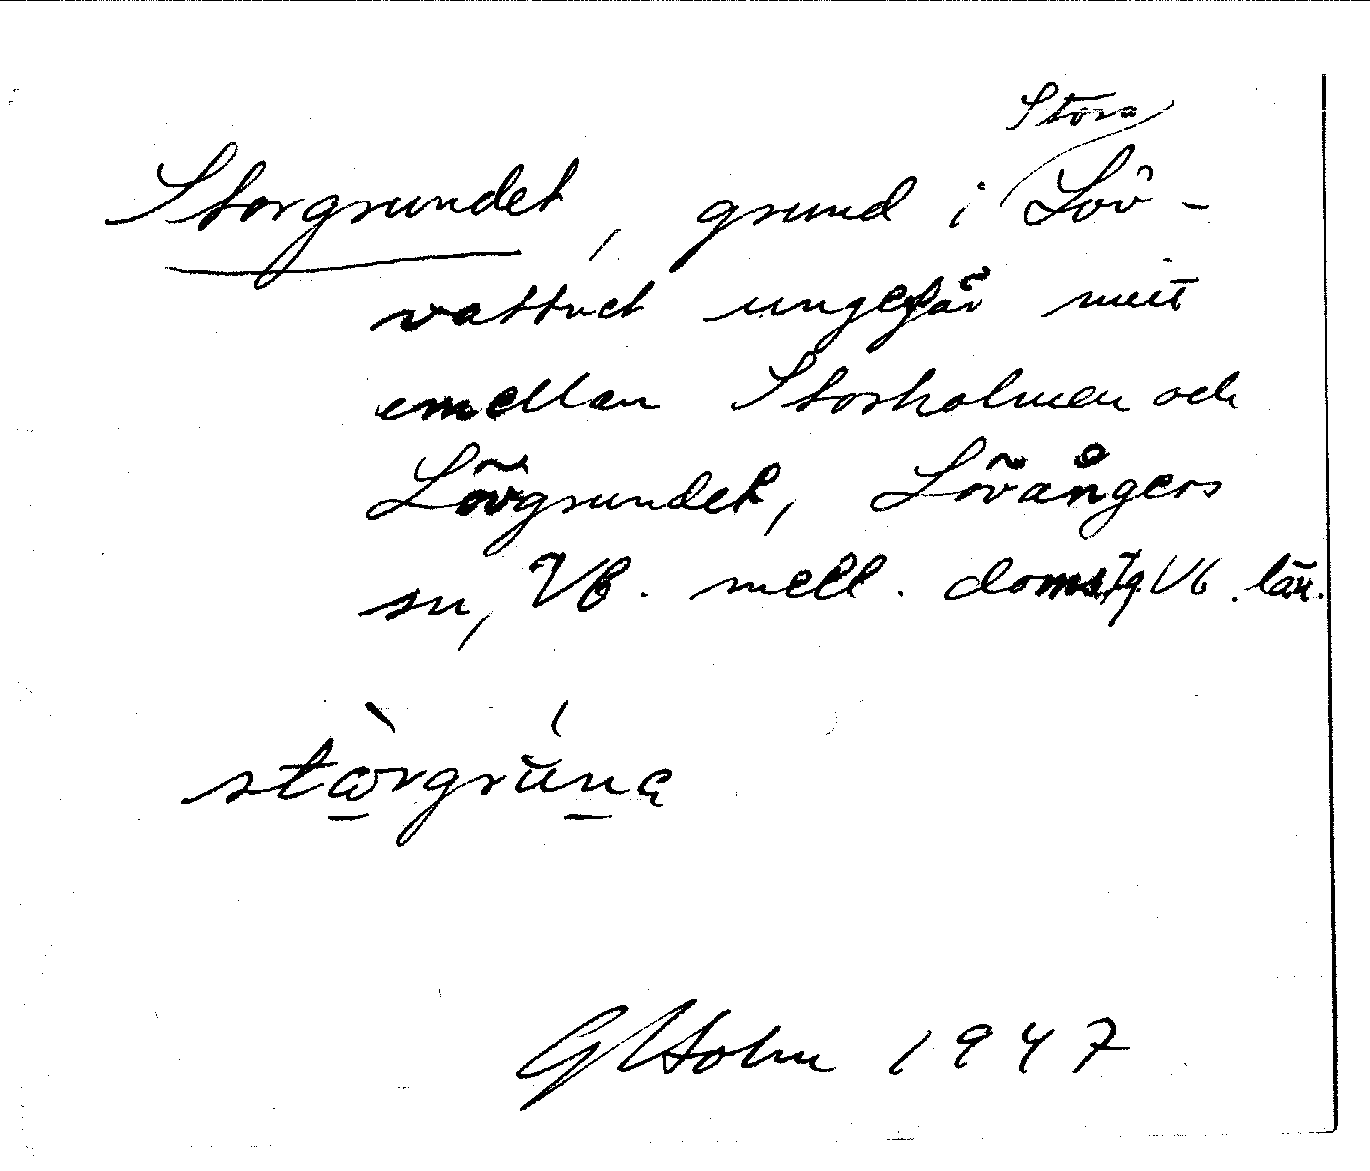 Storgrundet, grund i Stora Löv-
vattnet ungefär mitt
emellan Storholmen och
Lövgrundet, Lövångers
sn, Vb. mell. doms,tg Vb. län.
stòrgrúna
G Holm 1947